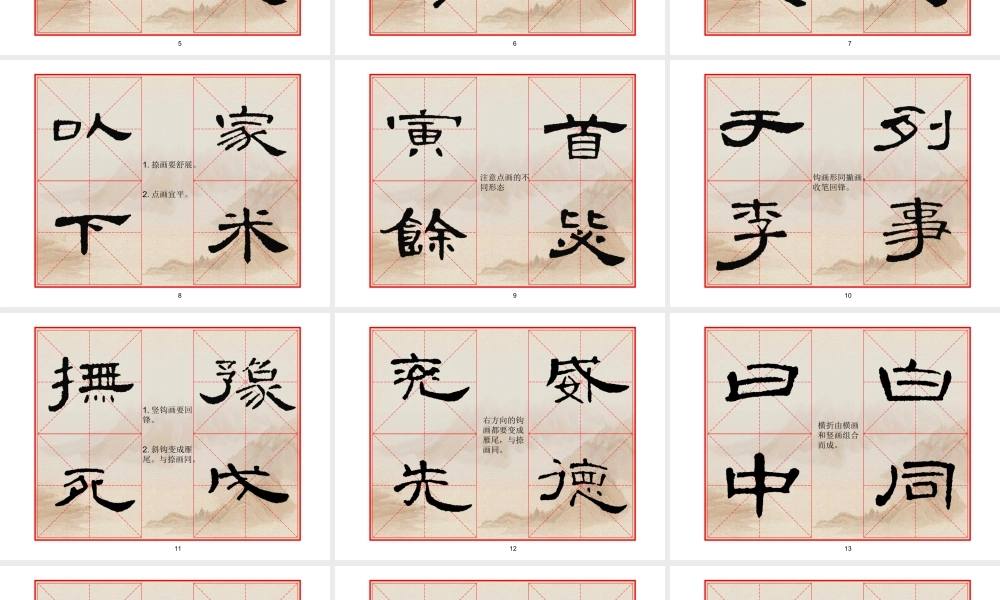 5
6
7
㕥 家
1. 捺画要舒展。
2. 点画宜平。
下 米
8
寅 首
注意点画的不
同形态
餘
9
于 列
钩画形同撇画，
收笔回锋。
李 事
10
撫 豫
1. 竖钩画要回
锋。
2. 斜钩变成雁
尾。与捺画同。
死 戊
11
兖 威
右方向的钩
画都要变成
雁尾，与捺
画同。
先 德
12
曰 白
横折由横画
和竖画组合
而成。
中 同
13